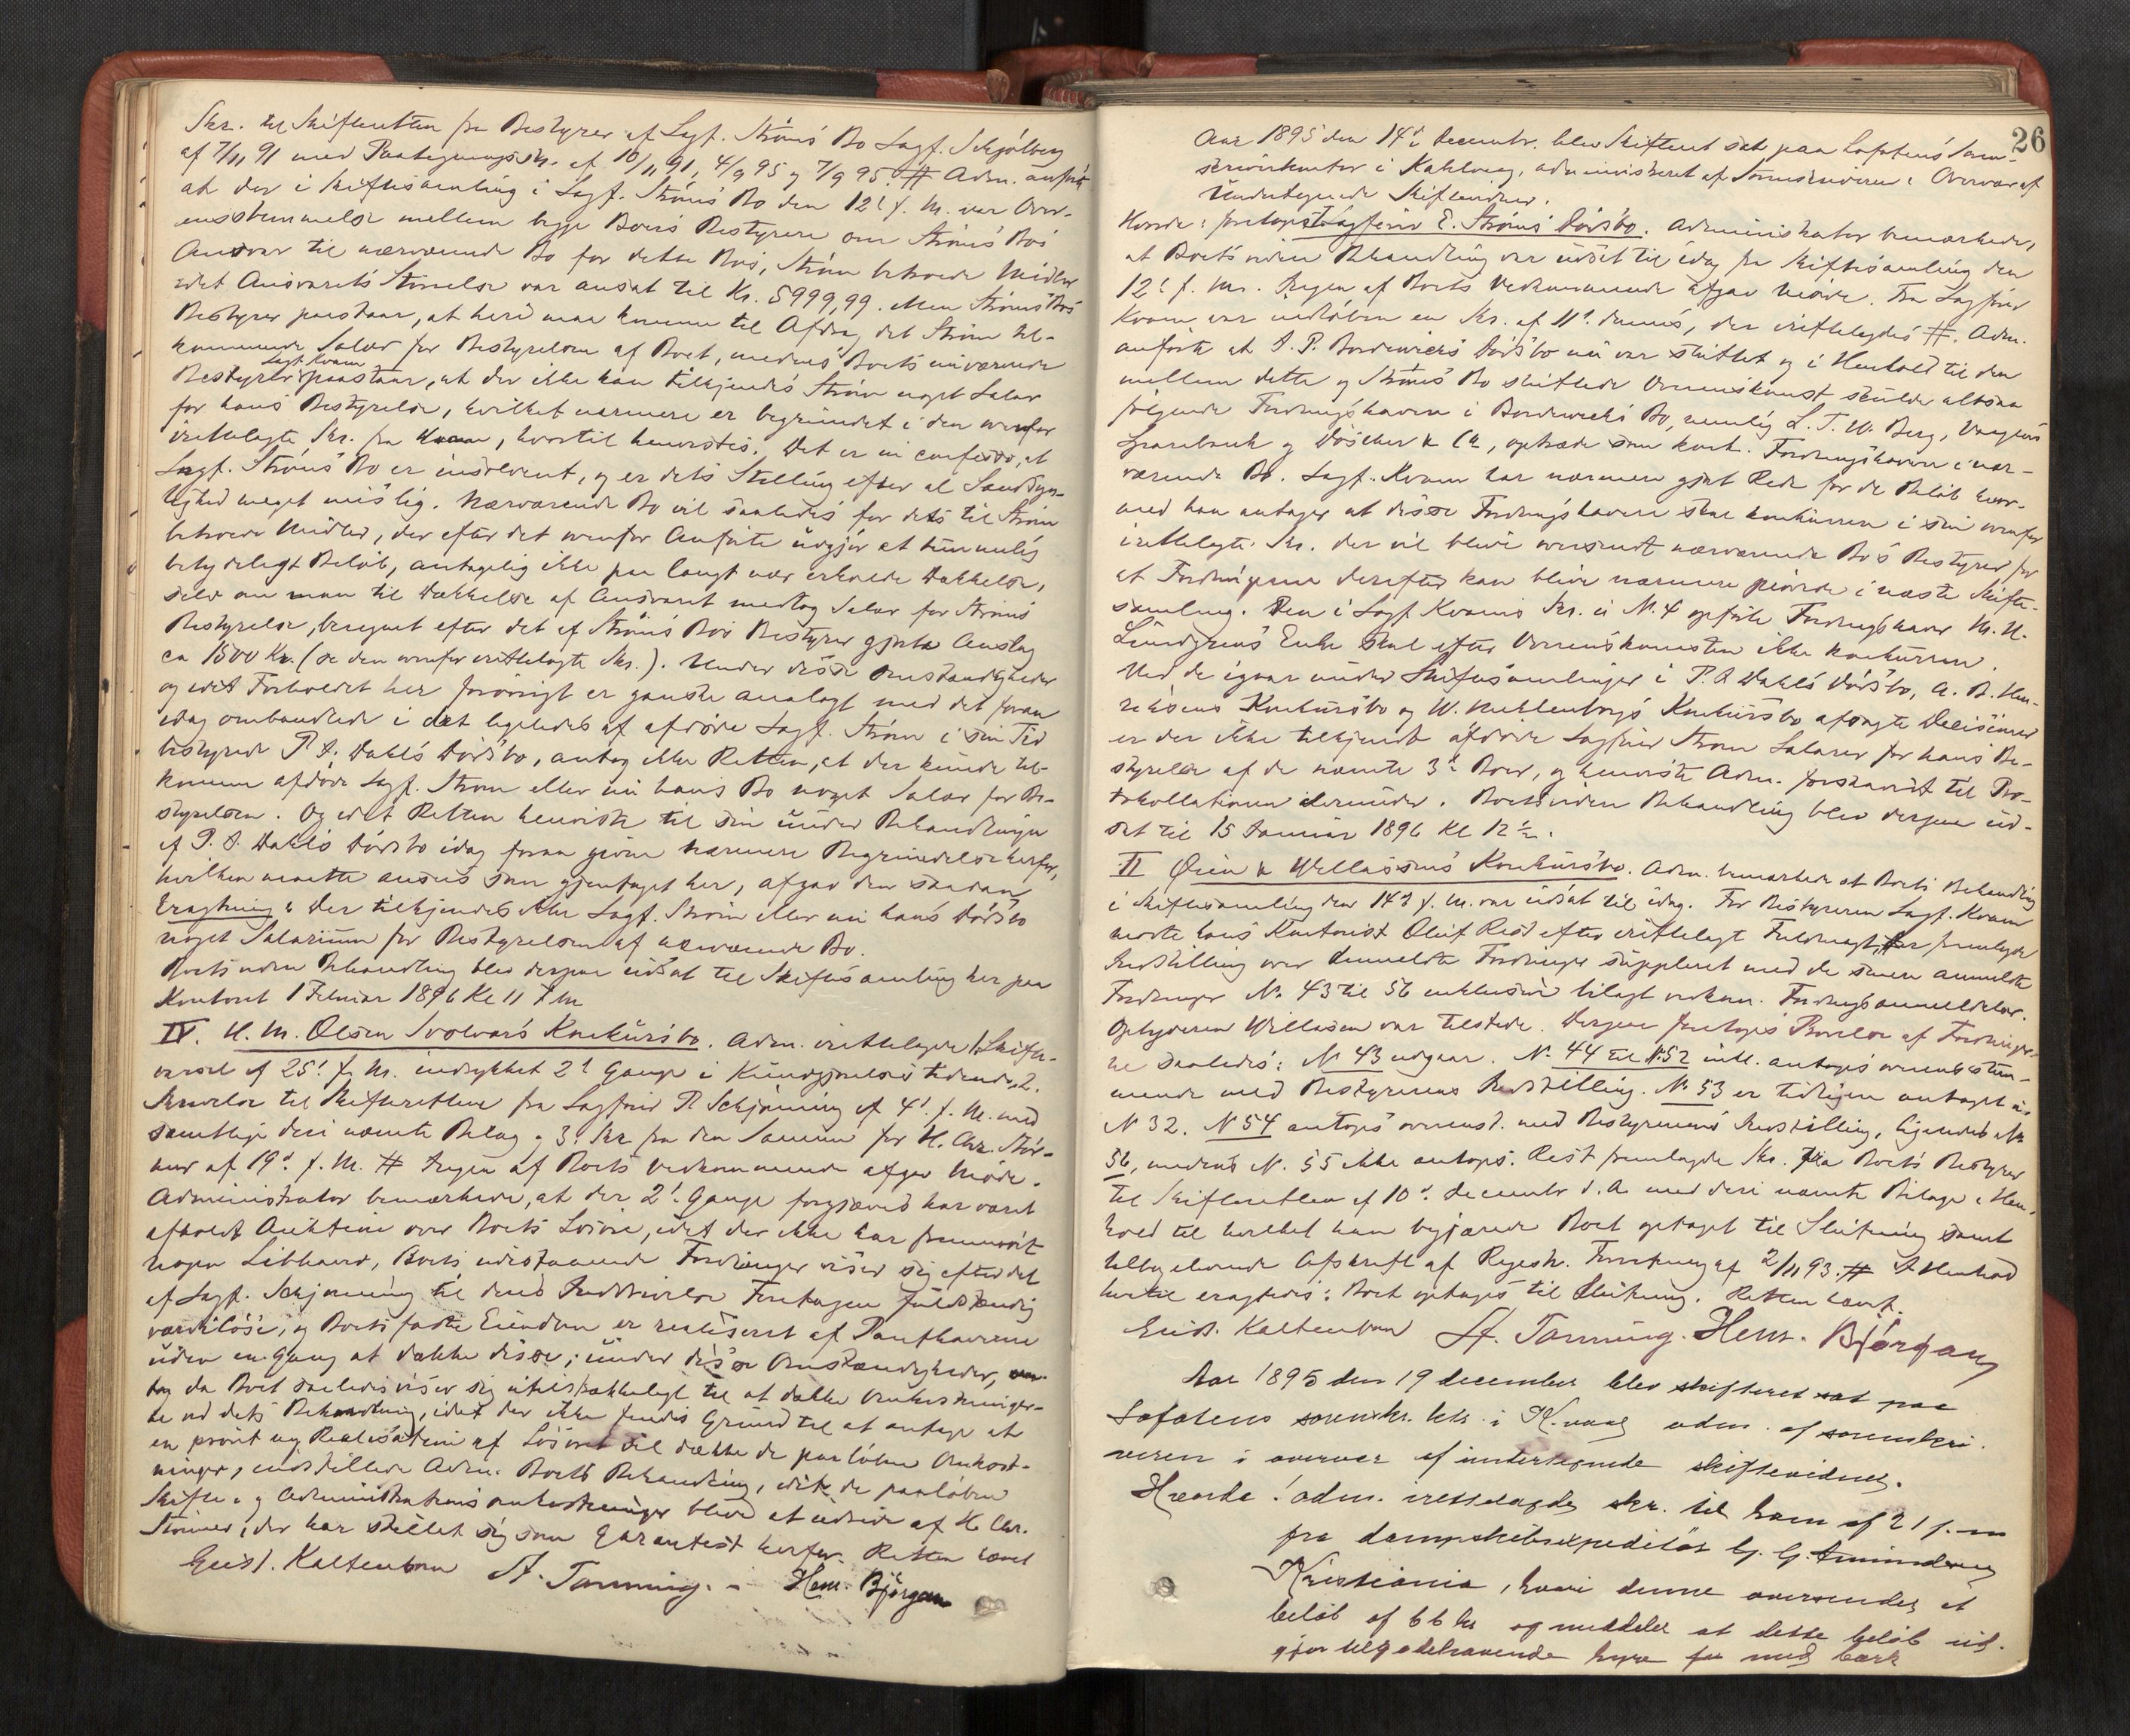 Skr. til Skifteretten fra Bestyrer af Sagf. Ströms Bo Sagf. Schjölberg
af 7/11 91 med Paategningsskr. af 10/11 91, 4/9 95 og 7/9 95. # Adm. anförte
at der i Skiftesamling i Sagf. Ströms Bo den 12te f. M. var Over-
ensstemmelse mellem begge Boers Bestyrere om Ströms Bos
Ansvar til nærværende Bo for dette Bos, Ström betroede Midler
idet Ansvarets Störrelse var ansat til Kr. 5999,99. Men Ströms Bos
Bestyrer paastaar, at heri maa komme til Afdrag det Ström til-
kommende Salær for Bestyrelsen af Boet, medens Boets nuværende
Bestyrer Sagf. Kvam paastaar, at der ikke kan tilkjendes Ström noget Salær
for hans Bestyrelse, hvilket nærmere er begrundet i den ovenfor
irettelagte Skr. fra Kvam, hvortil henvistes. Det er in confesso, at
Sagf. Ströms Bo er insolvent, og er dets Stilling efter al Sandsyn-
lighed meget mislig. Nærværende Bo vil saaledes for dets til Ström
betroede Midler, der efter det ovenfor Anförte udgjör et temmelig
betydeligt Belöb, antagelig ikke paa langt nær erholde Dækkelse,
selv om man til Dækkelse af Ansvaret medtog Salær for Ströms
Bestyrelse, beregnet efter det af Ströms Bos Bestyrer gjorte Anslag
ca 1500 Kr. (se den ovenfor irettelagte Skr.). Under disse Omstændigheder
og idet Forholdet her forövrigt er ganske analogt med det foran
idag ombandlede i det ligeledes af afdöde Sagf. Ström i sin Tid
bestyrede P. A. Dahls Dödsbo, antog ikke Retten, at der kunde til-
komme afdöde Sagf. Ström eller nu hans Bo noget Salær for Be-
styrelsen. Og idet Retten henviste til sin under Behandlingen
af P. A. Dahls Dödsbo idag foran givne nærmere Begrundelse herfor,
hvilken maatte ansees som gjentaget her, afgav den saadan
Eragtning: Der tilkjendes ikke Sagf. Ström eller nu hans Dödsbo
noget Salarium for Bestyrelsen af nærværende Bo.
Boets videre Behandling blev derpaa udsat til Skiftesamling her paa
Kontoret 1 Februar 1896 Kl 11 Fm
IV. H. M. Olsen Svolværs Konkursbo. Adm. irettelagde 1. Skifte-
varsel af 25de f. M. indrykket 2de Gange i Kundgjörelsestidende, 2.
Skrivelse til Skifteretten fra Sagförer P. Schjönning af 4de f. M. med
samtlige deri nævnte Bilag og 3. Skr fra den Samme for H. Chr. Stör-
mer af 19de f. M. # Ingen af Boets Vedkommende afgav Möde.
Administrator bemærkede, at der 2de Gange forgjæves har været
afholdt Auktion over Boets Lösöre, idet der ikke har fremmödt
nogen Liebhaver, Boets udestaaende Fordringer viser sig efter det
af Sagf. Schjönning til deres Inddrivelse Foretagne fuldstændig
værdilöse, og Boets faste Eiendom er realiseret af Panthaverne
uden engang at dække disse; under disse Omstændigheder, og
da Boet saaledes viser sig utilstrækkeligt til at dække Omkostninger-
ne ved dets Behandling, idet der ikke findes Grund til at antage at
en privat og Realisation af Lösöret vil dække de paalöbne Omkost-
ninger, indstillede Adm. Boets Behandling, idet de paalöbne
Skifte- og Administrationsomkostninger bliver at udrede af H. Chr.
Störmer, der har stillet sig som Garantist herfor. Retten hævet
Eist. Kaltenborn A. Tanning. Hem. Björgan
26
Aar 1895 den 14de Decembr. blev Skifteret sat paa Lofotens Soren-
skriverkontor i Kabelvaag, administreret af Sorenskriveren i Overvær af
Undertegnede Skiftevidner.
Hvorda: foretoges I Sagförer E. Ströms Dödsbo. Administrator bemærkede,
at Boets videre Behandling var udsat til idag fra Skiftesamling den
12te f. M. Ingen af Boets Vedkommende afgav Möde. Fra Sagförer
Kvam var indlöben en Skr. af 11te dennes, der irettelagdes #. Adm.
anförte at J. P. Bordewichs Dödsbo nu var sluttet og i Henhold til den
mellem dette og Ströms Bo sluttede Overenskomst skulde altsaa
fölgende Fordringshavere i Bordewichs Bo, nemlig L. T. W. Berg, Vaagens
Sparebank og Döscher & Co, optræde som konk. Fordringshavere i nær-
værende Bo. Sagf. Kvam har nærmere gjort Rede for de Belöb hvor-
med han antager at disse Fordringshavere skal konkurrere i sin ovenfor
irettelagte Skr. der vil blive oversendt nærværende Bos Bestyrer for
at Fordringerne derefter kan blive nærmere prövede i næste Skifte-
samling. Den i Sagf. Kvams Skr. u N. 4 opförte Fordringshaver M. H.
Lundgrens Enke skal efter Overenskomsten ikke konkurrere.
Ved de igaar under Skiftesamlinger i P. A Dahls Dödsbo, A. B. Hen-
riksens Konkursbo og W. Mehlenborgs Konkursbo afsagte Decisioner
er der ikke tilkjendt afdöde Sagförer Ström Salærer for hans Be-
styrelse af de nævnte 3de Boer, og henviste Adm. forsaavidt til Pro-
tokollationen derunder. Boets videre Behandling blev derpaa ud-
sat til 15 Januar 1896 Kl 12 1/2.
II Öien & Willassens Konkursbo. Adm. bemærkede at Boets Behandling
i Skiftesamling den 14de f. M. var udsat til idag. For Bestyreren Sagf. Kvam
mödte hans Kontorist Oluf Rest efter irettelagt Fuldmagt, der fremlagde
Indstilling over anmeldte Fordringer suppleret med de senere anmeldte
Fordringer No 43 til 56 inklusive bilagt vedkom. Fordringsanmeldelser.
Opbyderen Willasen var tilstede. Derpaa foretoges Prövelse af Fordringer-
ne saaledes: No 43 udgaar. No 44 til N 52 inkl. antoges overensstem-
mende med Bestyrerens Indstilling. No 53 er tidligere antaget u.
N 32. N 54 antoges overenst. med Bestyrerens Indstilling, ligeledes No
56, medens N. 55 ikke antoges. Rest fremlagde Skr. fra Boets Bestyrer
til Skifteretten af 10de Decembr d. A. med deri nævnte Bilage i Hen-
hold til hvilket han begjærede Boet optaget til Slutning samt
tilbageleverede Afskrift af Registr. Forretning af 2/11 93. # I Henhold
hertil eragtedes: Boet optages til Slutning. Retten hævet.
Eist. Kaltenborn A. Tanning. Hem. Björgan
Aar 1895 den 19 december blev skifteret sat paa
Lofotens sorenskr. ktr. i K.vaag adm. af sorenskri-
veren i overvær af undertegnede skiftevidner.
Hvorda! adm. irettelagdes skr. til ham af 21 f. m
fra dampskibsexpeditör G. G. Amundsen
Kristiania, hvori denne oversendes et
belöb af 66 kr og meddeler at dette belöb ud-
gjör tilgodehavende hyre fra med bark